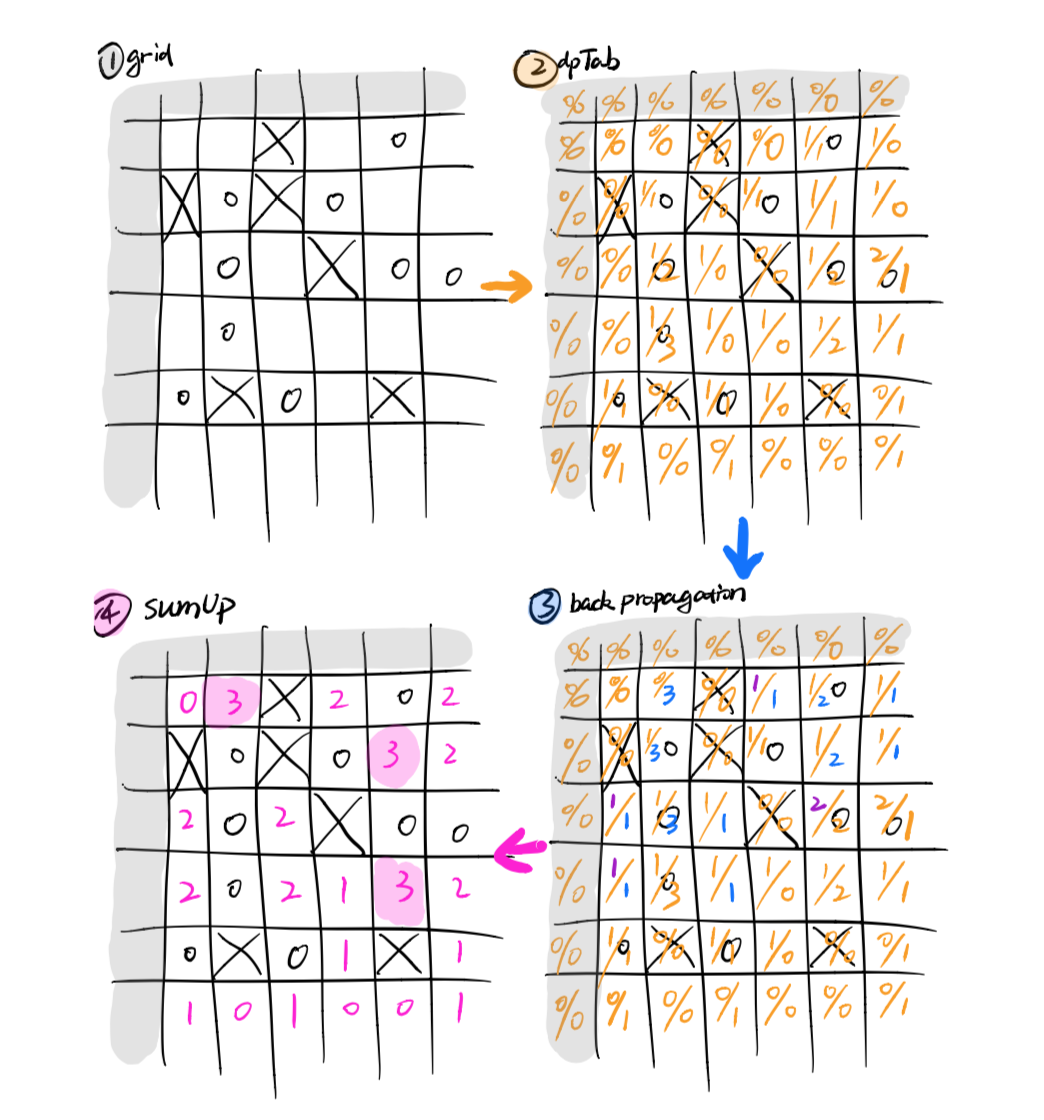 ① grid
X 0
X 0 X 0
0 X 0 0
0
0 X 0 X
② dpTab
0/0 0/0 0/0 0/0 0/0 0/0 0/0
0/0 0/0 0/0 X 0/0 0/0 1/0 0 1/0
0/0 X 0/0 1/0 0 X 0/0 1/0 0 1/1 1/0
0/0 0/0 1/2 0 1/0 X 0/0 1/2 0 2/1 0
0/0 0/0 1/3 0 1/0 1/0 1/2 1/1
0/0 1/1 0 X 0/0 1/1 0 1/0 X 0/0 0/1
0/0 0/1 0/0 0/1 0/0 0/0 0/1
③ back propagation
0/0 0/0 0/0 0/0 0/0 0/0 0/0
0/0 0/0 0/3 X 0/0 1/1 1/2 0 1/1
0/0 X 0/0 1/3 0 X 0/0 1/0 0 1/2 1/1
0/0 1/1 1/3 0 1/1 X 0/0 2/2 0 2/1 0
0/0 1/1 1/3 0 1/1 1/0 1/2 1/1
0/0 1/1 0 X 0/0 1/1 0 1/0 X 0/0 0/1
0/0 0/1 0/0 0/1 0/0 0/0 0/1
④ sumUp
0 3 X 2 0 2
X 0 X 0 3 2
2 0 2 X 0 0
2 0 2 1 3 2
0 X 0 1 X 1
1 0 1 0 0 1